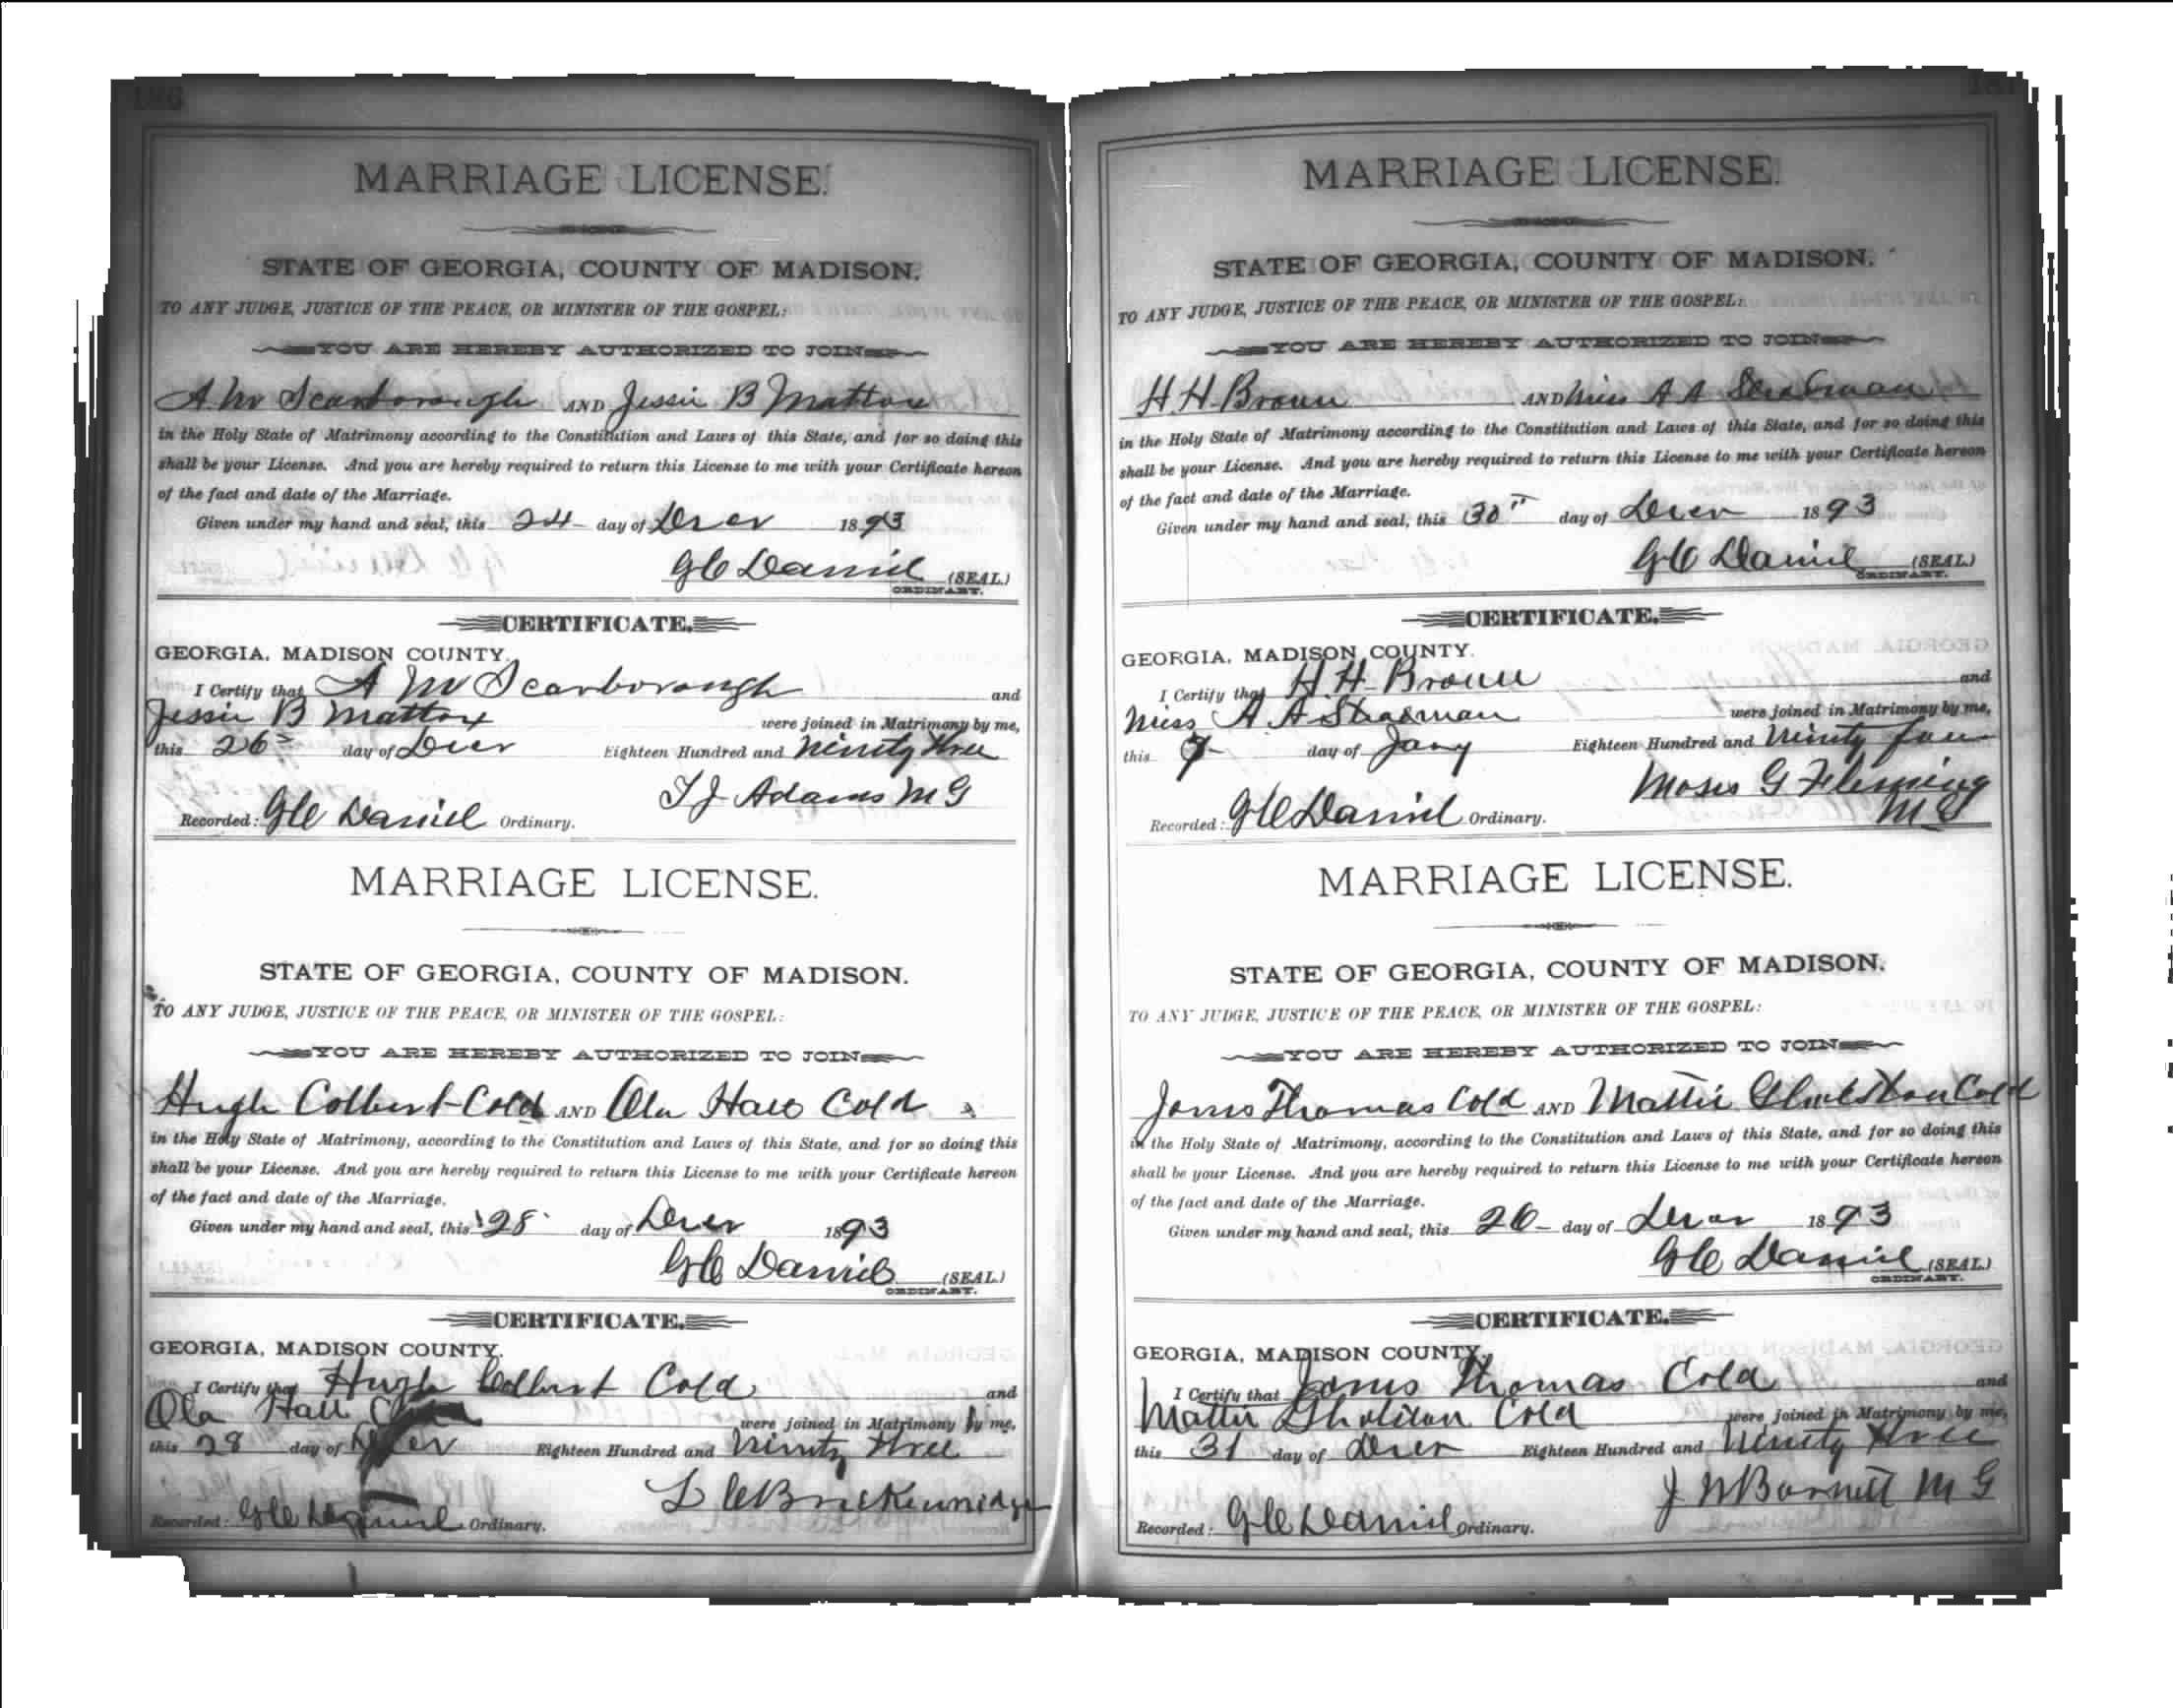 186
MARRIAGE LICENSE.
STATE OF GEORGIA, COUNTY OF MADISON.
TO ANY JUDGE, JUSTICE OF THE PEACE, OR MINISTER OF THE GOSPEL:
YOU ARE HEREBY AUTHORIZED TO JOIN
A M Scarborough AND Jessie B Mattox
in the Holy State of Matrimony according to the Constitution and Laws of this State, and for so doing this
shall be your License. And you are hereby required to return this License to me with your Certificate hereon
of the fact and date of the Marriage.
Given under my hand and seal, this 24 day of Decr 1893
G C Daniel (SEAL.)
ORDINARY.
CERTIFICATE.
GEORGIA, MADISON COUNTY.
I Certify that A M Scarborough and
Jessie B Mattox were joined in Matrimony by me,
this 26 day of Decr Eighteen Hundred and Ninety three
T J Adams M G
Recorded: G C Daniel Ordinary.
MARRIAGE LICENSE.
STATE OF GEORGIA, COUNTY OF MADISON.
TO ANY JUDGE, JUSTICE OF THE PEACE, OR MINISTER OF THE GOSPEL:
YOU ARE HEREBY AUTHORIZED TO JOIN
Hugh Colbert Cold AND Ola Hall Cold
in the Holy State of Matrimony, according to the Constitution and Laws of this State, and for so doing this
shall be your License. And you are hereby required to return this License to me with your Certificate hereon
of the fact and date of the Marriage.
Given under my hand and seal, this 28 day of Decr 1893
G C Daniel (SEAL.)
ORDINARY.
CERTIFICATE.
GEORGIA, MADISON COUNTY.
I Certify that Hugh Colbert Cold and
Ola Hall were joined in Matrimony by me,
this 28 day of Decr Eighteen Hundred and Ninety three
Recorded: G C Daniel Ordinary.
187
MARRIAGE LICENSE.
STATE OF GEORGIA, COUNTY OF MADISON.
TO ANY JUDGE, JUSTICE OF THE PEACE, OR MINISTER OF THE GOSPEL:
YOU ARE HEREBY AUTHORIZED TO JOIN
H. H. Brown AND Miss A A
in the Holy State of Matrimony according to the Constitution and Laws of this State, and for so doing this
shall be your License. And you are hereby required to return this License to me with your Certificate hereon
of the fact and date of the Marriage.
Given under my hand and seal, this 30" day of Decr 1893
G C Daniel (SEAL.)
ORDINARY.
CERTIFICATE.
GEORGIA, MADISON COUNTY.
I Certify that H. H. Brown and
Miss A. A were joined in Matrimony by me,
this 7 day of Jany Eighteen Hundred and Ninety four
Moses G Fleming
M G
Recorded: G C Daniel Ordinary.
MARRIAGE LICENSE.
STATE OF GEORGIA, COUNTY OF MADISON.
TO ANY JUDGE, JUSTICE OF THE PEACE, OR MINISTER OF THE GOSPEL:
YOU ARE HEREBY AUTHORIZED TO JOIN
Thomas Cold AND Mattie Cold
in the Holy State of Matrimony, according to the Constitution and Laws of this State, and for so doing this
shall be your License. And you are hereby required to return this License to me with your Certificate hereon
of the fact and date of the Marriage.
Given under my hand and seal, this 26 day of Decr 1893
G C Daniel (SEAL.)
ORDINARY.
CERTIFICATE.
GEORGIA, MADISON COUNTY.
I Certify that Thomas Cold and
Mattie Cold were joined in Matrimony by me,
this 31 day of Decr Eighteen Hundred and Ninety three
J N Barnett M G
Recorded: G C Daniel Ordinary.